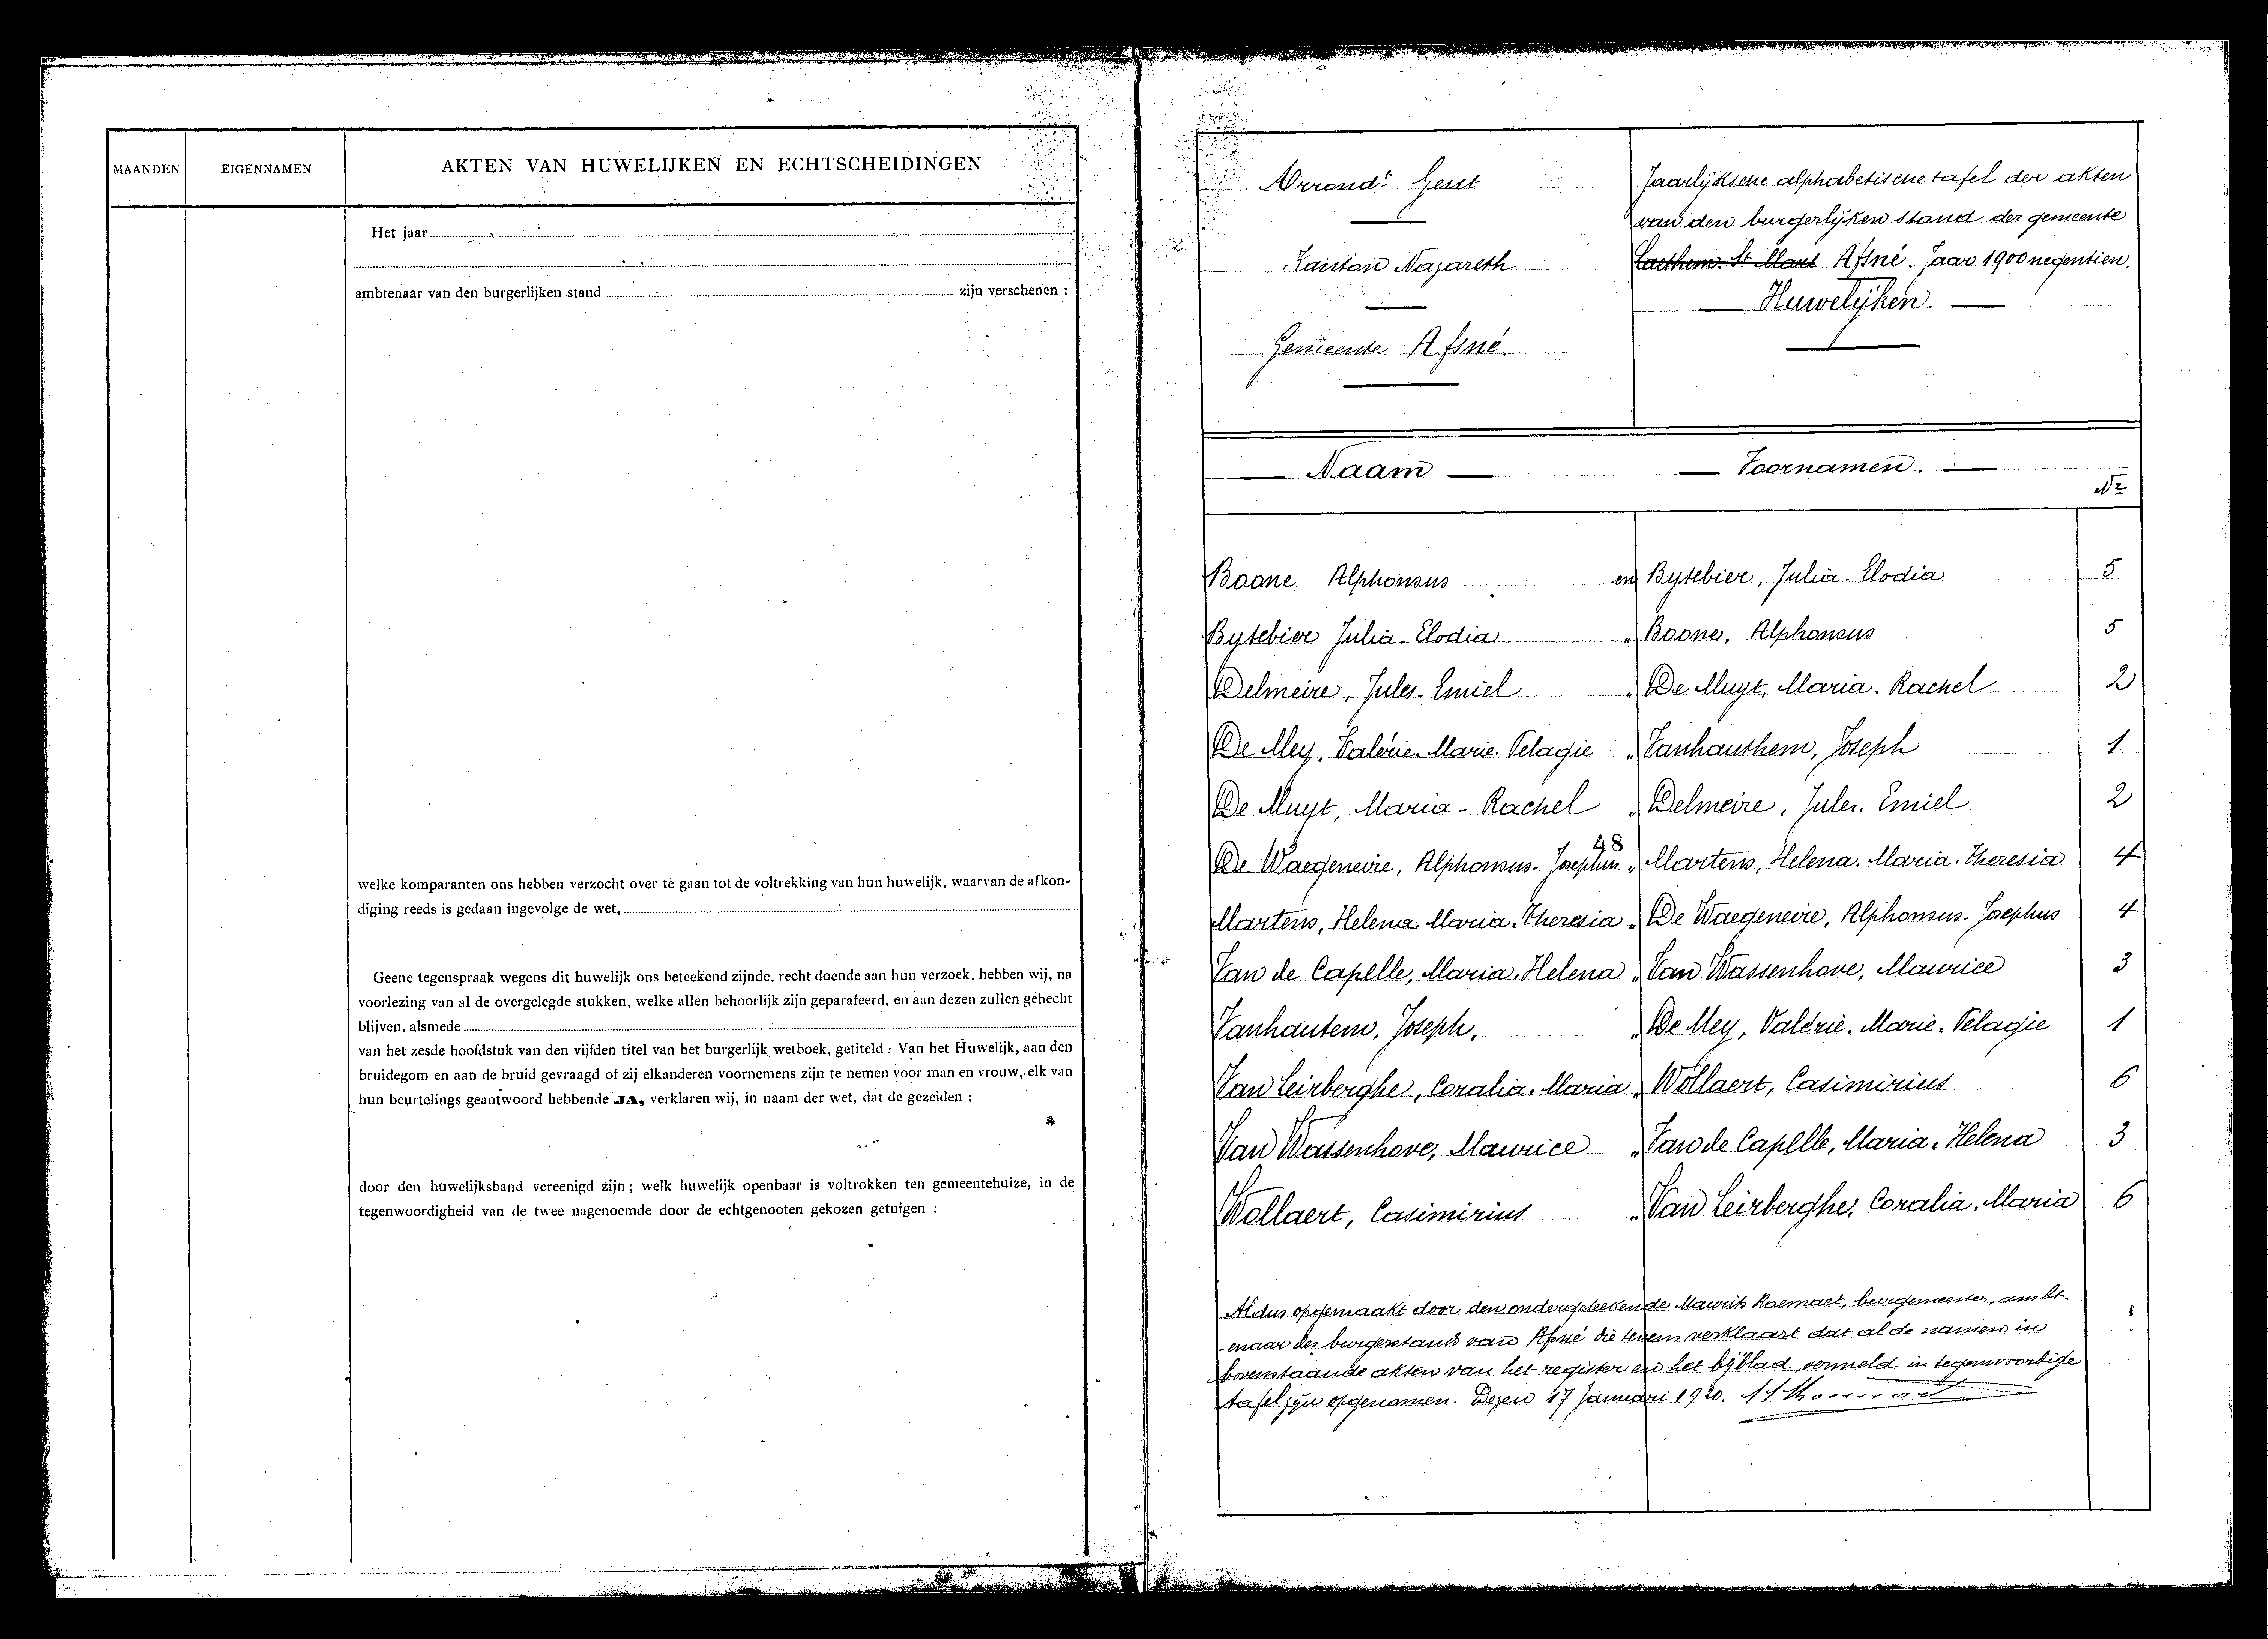 MAANDEN EIGENNAMEN AKTEN VAN HUWELIJKEN EN ECHTSCHEIDINGEN
Het jaar
ambtenaar van den burgerlijken stand zijn verschenen :
welke komparanten ons hebben verzocht over te gaan tot de voltrekking van hun huwelijk, waarvan de afkon-
diging reeds is gedaan ingevolge de wet,
Geene tegenspraak wegens dit huwelijk ons beteekend zijnde, recht doende aan hun verzoek. hebben wij, na
voorlezing van al de overgelegde stukken, welke allen behoorlijk zijn geparafeerd, en aan dezen zullen gehecht
blijven, alsmede
van het zesde hoofdstuk van den vijfden titel van het burgerlijk wetboek, getiteld : Van het Huwelijk, aan den
bruidegom en aan de bruid gevraagd of zij elkanderen voornemens zijn te nemen voor man en vrouw, elk van
hun beurtelings geantwoord hebbende JA, verklaren wij, in naam der wet, dat de gezeiden :
door den huwelijksband vereenigd zijn ; welk huwelijk openbaar is voltrokken ten gemeentehuize, in de
tegenwoordigheid van de twee nagenoemde door de echtgenooten gekozen getuigen :
Arrondt Gent
Kanton Nazareth
Gemeente Afsné.
Jaarlijksche alphabetische tafel der akten
van den burgerlijken stand der gemeente
Laethem. St Mart Afsné. Jaar 1900 negentien.
Huwelijken.
Naam Voornamen.
Nr
Boone Alphonsus en Bytebier, Julia. Elodia 5
Bytebier Julia-Elodia " Boone, Alphonsus 5
Delmeire, Jules-Emiel " De Muyt, Maria. Rachel 2
De Mey, Valérie. Marie. Pelagie " Vanhauthem, Joseph 1
De Muyt, Maria-Rachel " Delmeire, Jules. Emiel 2
48
De Waegeneire, Alphonsus-Josephus " Martens, Helena. Maria. Theresia 4
Martens, Helena. Maria. Theresia " De Waegeneire, Alphonsus-Josephus 4
Van de Capelle, Maria. Helena " Van Wassenhove, Maurice 3
Vanhautem, Joseph, " De Mey, Valérie. Marie. Pelagie 1
Van Leirberghe, Coralia. Maria " Wollaert, Casimirius 6
Van Wassenhove, Maurice " Van de Capelle, Maria. Helena 3
Wollaert, Casimirius " Van Leirberghe, Coralia. Maria 6
Aldus opgemaakt door den ondergeteekende Maurits burgemeester, ambt-
enaar des burgerstands van Afsné die tevens verklaart dat al de namen in
bovenstaande akten van het register en het bijblad vermeld in tegenwoordige
tafel zijn opgenomen. Dezen 17 Januari 1920.